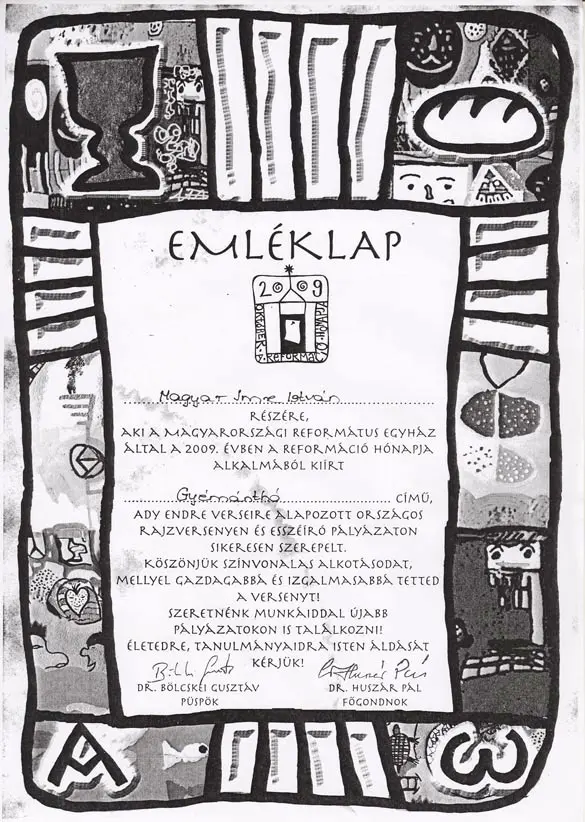 EMLÉKLAP
2009
OKTÓBER A REFORMÁCIÓ HÓNAPJA
Magyar Imre István
RÉSZÉRE,
AKI A MAGYARORSZÁGI REFORMÁTUS EGYHÁZ
ÁLTAL A 2009. ÉVBEN A REFORMÁCIÓ HÓNAPJA
ALKALMÁBÓL KIÍRT
Gyémánthó CÍMŰ,
ADY ENDRE VERSEIRE ALAPOZOTT ORSZÁGOS
RAJZVERSENYEN ÉS ESSZÉÍRÓ PÁLYÁZATON
SIKERESEN SZEREPELT.
KÖSZÖNJÜK SZÍNVONALAS ALKOTÁSODAT,
MELLYEL GAZDAGABBÁ ÉS IZGALMASABBÁ TETTED
A VERSENYT!
SZERETNÉNK MUNKÁIDDAL ÚJABB
PÁLYÁZATOKON IS TALÁLKOZNI!
ÉLETEDRE, TANULMÁNYAIDRA ISTEN ÁLDÁSÁT
KÉRJÜK!
DR. BÖLCSKEI GUSZTÁV DR. HUSZÁR PÁL
PÜSPÖK FŐGONDNOK
A ω